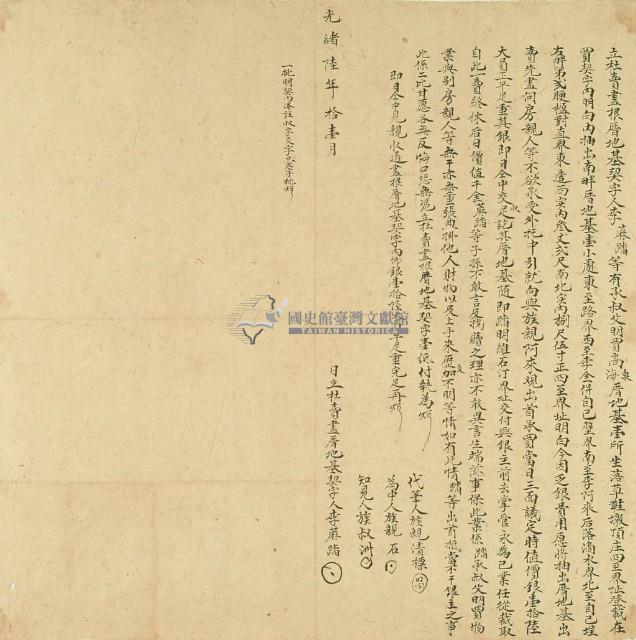 立杜賣盡根厝地基契字人李蔴踏等有承叔父明買高東海厝地基壹所坐落草鞋墩頂庄四至界址登載在
買契字內明白內抽出南畔厝地基壹小處東至路界西至李金作自己壁界南至李阿來后落滴水界北至自己埕
右畔第弍腰檻對直界東透西實內叁丈弍尺南北實內捌尺伍寸正四至界址明白今因乏銀費用愿將抽出厝地基出
賣先盡問房親人等不欲承受外托中引就向與族親阿來觀出首承買當日三面議定時值價銀壹拾陸
大員正平足重其銀即日仝中交收足訖其厝地基隨即踏明雄石汀界址交付與銀主前去掌管永為己業任從裁取
自此一賣終休后日價值千金蔴踏等子孫不敢言及找贖之理亦不敢異言生端滋事保此業係踏承叔父明買物
業與別房親人等無干亦無重張典掛他人財物以及上手來歷交加不明等情如有此情踏等出首抵當不干銀主之事
此係二比甘愿各無反悔口恐無憑立杜賣盡根厝地基契字壹紙付執為炤
即日仝中見親收過盡根厝地基契字內佛銀壹拾陸大員平足重完足再炤
代筆人族親清標
為中人族親石
知見人族叔洲
日立杜賣盡厝地基契字人李蔴踏
光緒陸年拾壹月
一批明契內添註收字交字
國史館臺灣文獻館
TAIWAN HISTORICA